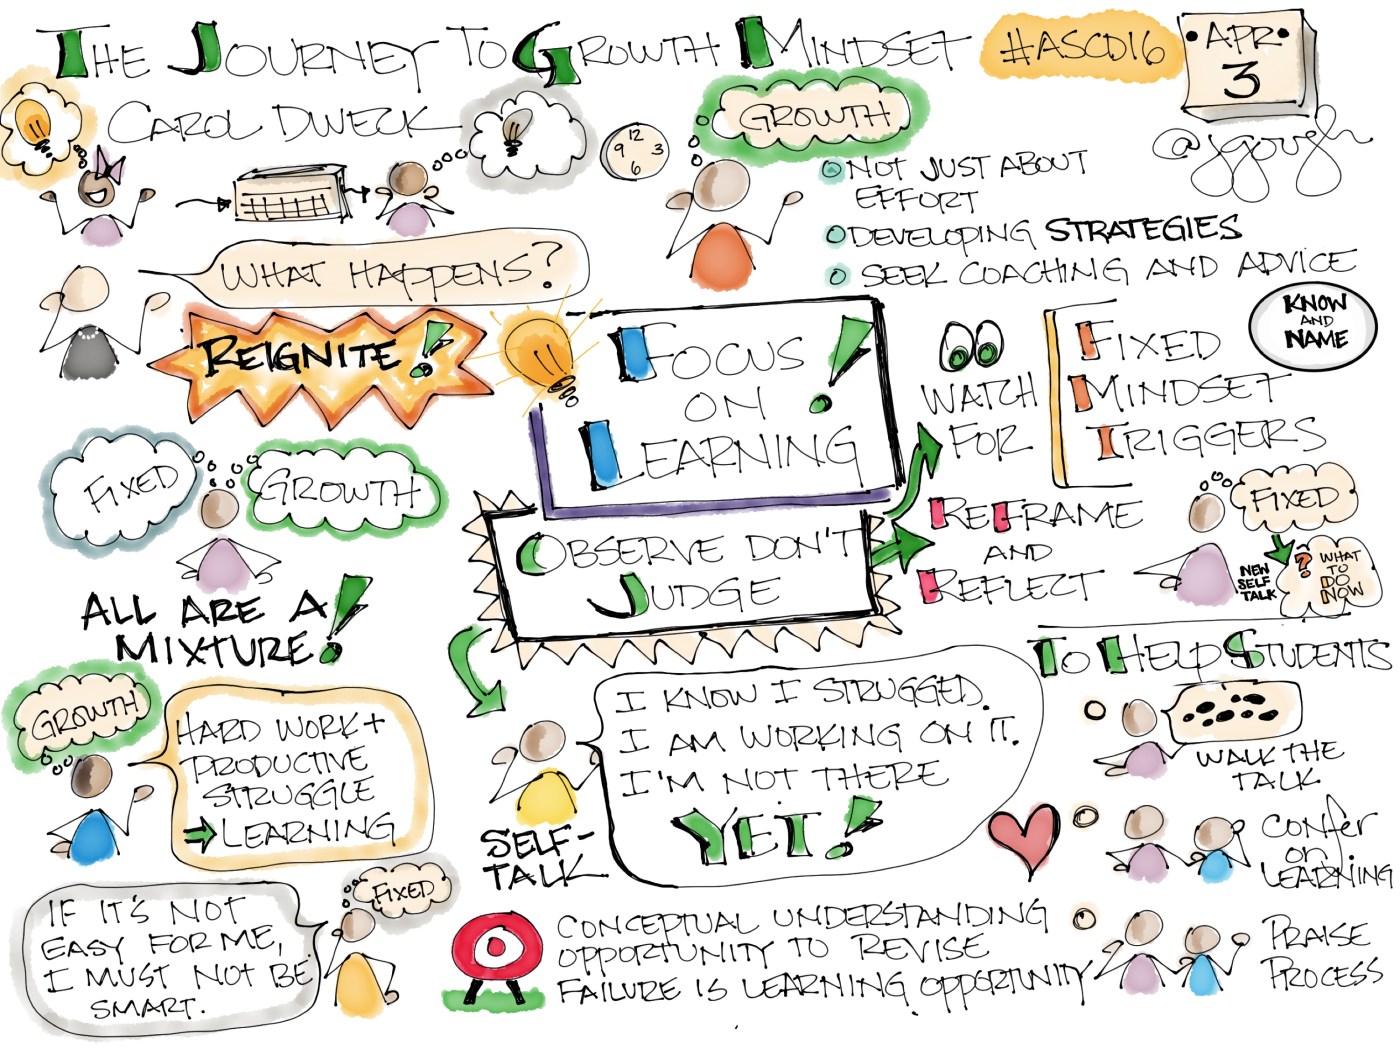 THE JOURNEY TO GROWTH MINDSET
#ASCD16
APR
3
@jgough
CAROL DWECK
12
9 3
6
GROWTH
NOT JUST ABOUT
EFFORT
DEVELOPING STRATEGIES
SEEK COACHING AND ADVICE
WHAT HAPPENS?
REIGNITE!
FOCUS
ON
LEARNING!
WATCH
FOR
FIXED
MINDSET
TRIGGERS
KNOW
AND
NAME
FIXED
GROWTH
ALL ARE A
MIXTURE!
OBSERVE DON'T
JUDGE
REFRAME
AND
REFLECT
FIXED
NEW
SELF
TALK
? WHAT
TO
DO
NOW
GROWTH
HARD WORK +
PRODUCTIVE
STRUGGLE
LEARNING
FIXED
IF IT'S NOT
EASY FOR ME,
I MUST NOT BE
SMART.
SELF-
TALK
I KNOW I STRUGGED.
I AM WORKING ON IT.
I'M NOT THERE
YET!
CONCEPTUAL UNDERSTANDING
OPPORTUNITY TO REVISE
FAILURE IS LEARNING OPPORTUNITY
TO HELP STUDENTS
WALK THE
TALK
CONFER
ON
LEARNING
PRAISE
PROCESS